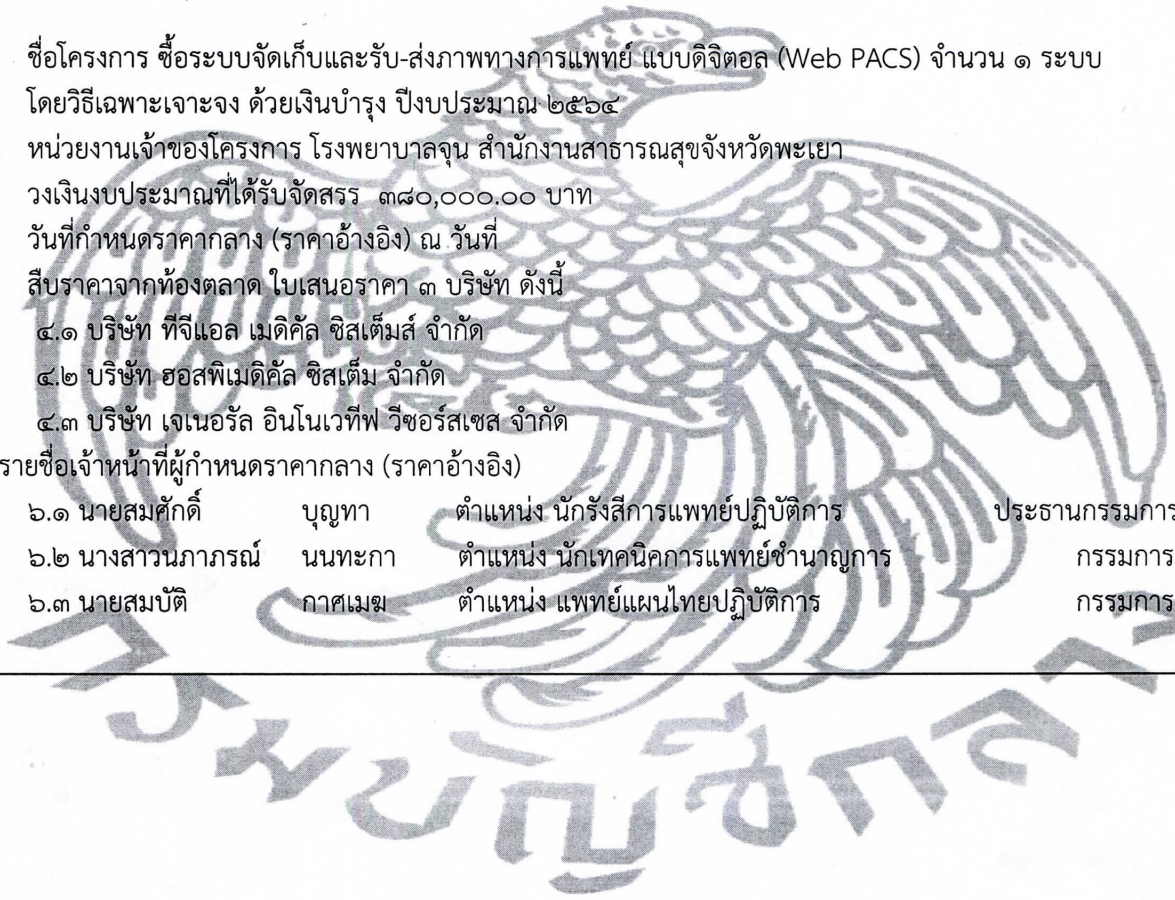 ชื่อโครงการ ซื้อระบบจัดเก็บและรับ-ส่งภาพทางการแพทย์ แบบดิจิตอล (Web PACS) จำนวน ๑ ระบบ
โดยวิธีเฉพาะเจาะจง ด้วยเงินบำรุง ปีงบประมาณ ๒๕๖๔
หน่วยงานเจ้าของโครงการ โรงพยาบาลจุน สำนักงานสาธารณสุขจังหวัดพะเยา
วงเงินงบประมาณที่ได้รับจัดสรร ๓๘๐,๐๐๐.๐๐ บาท
วันที่กำหนดราคากลาง (ราคาอ้างอิง) ณ วันที่
สืบราคาจากท้องตลาด ใบเสนอราคา ๓ บริษัท ดังนี้
๔.๑ บริษัท ทีจีแอล เมดิคัล ซิสเต็มส์ จำกัด
๔.๒ บริษัท ฮอสพิเมดิคัล ซิสเต็ม จำกัด
๔.๓ บริษัท เจเนอรัล อินโนเวทีฟ รีซอร์สเซส จำกัด
รายชื่อเจ้าหน้าที่ผู้กำหนดราคากลาง (ราคาอ้างอิง)
๖.๑ นายสมศักดิ์ บุญทา ตำแหน่ง นักรังสีการแพทย์ปฏิบัติการ ประธานกรรมการ
๖.๒ นางสาวนภาภรณ์ นนทะกา ตำแหน่ง นักเทคนิคการแพทย์ชำนาญการ กรรมการ
๖.๓ นายสมบัติ กาศเมฆ ตำแหน่ง แพทย์แผนไทยปฏิบัติการ กรรมการ
กรมบัญชีกลาง